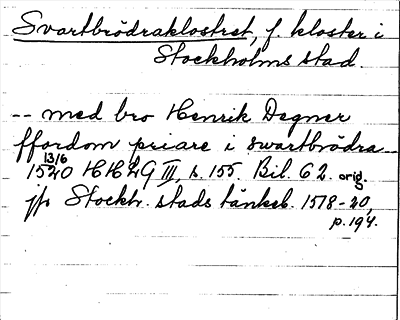 Svartbrödraklostret, f. kloster i
Stockholms stad.
-- med bro Henrik Degner
ffordom priare i swartbrödra --
13/6
1520 HH29 III, s. 155. Bil. 62. orig.
jfr Stockh. stads tänkeb. 1518-20,
p. 194.